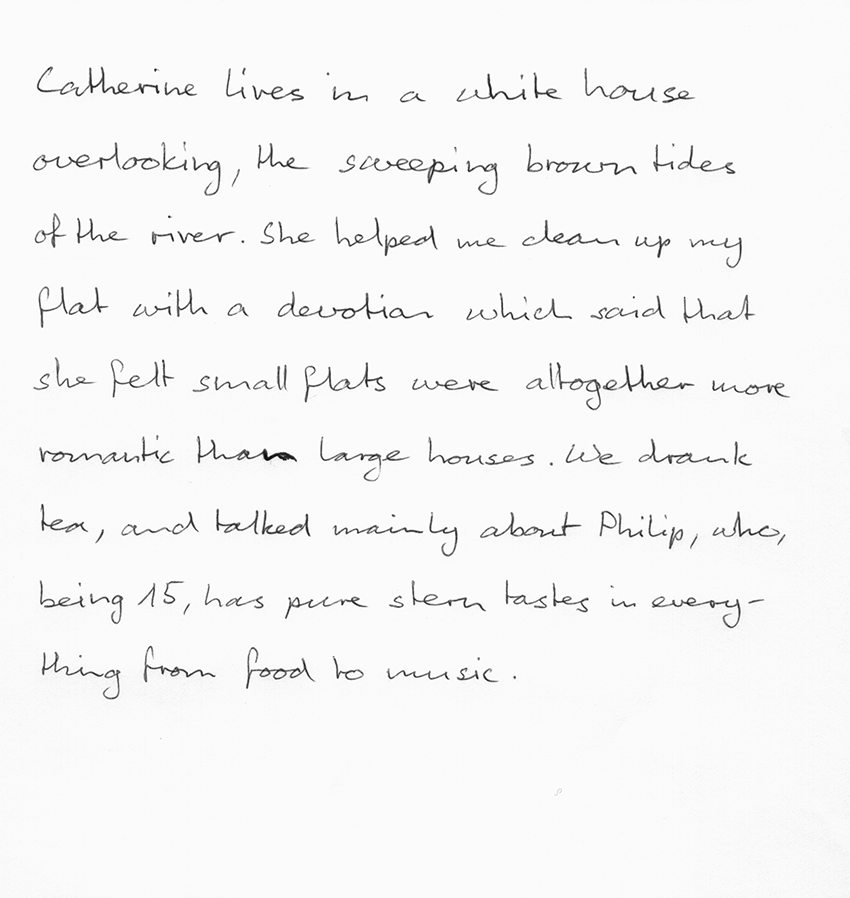 Catherine lives in a white house
overlooking, the sweeping brown tides
of the river. She helped me clean up my
flat with a devotion which said that
she felt small flats were altogether more
romantic than large houses. We drank
tea, and talked mainly about Philip, who,
being 15, has pure stern tastes in every-
thing from food to music.